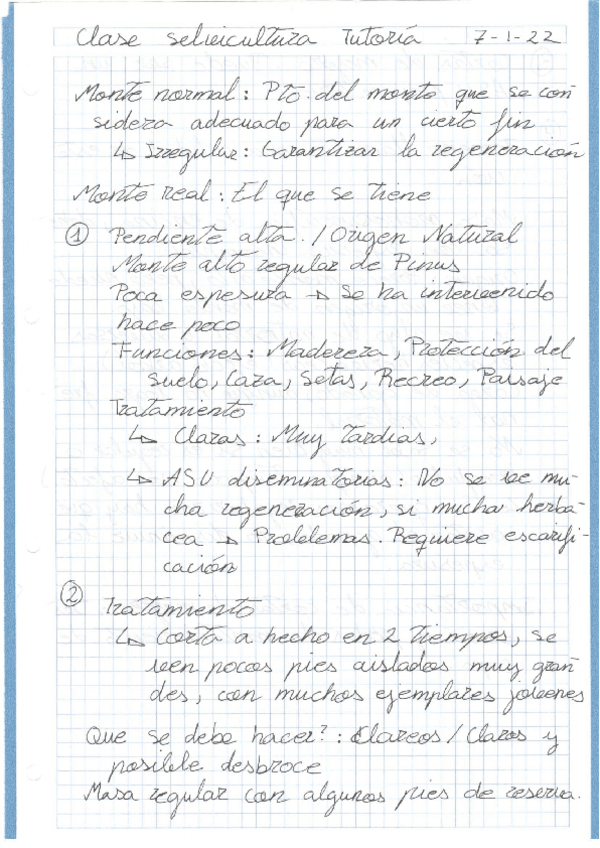 Clase selvicultura Tutoría 7-1-22
Monte normal: Pto. del monte que se con
sidera adecuado para un cierto fin
↳ Irregular: Garantizar la regeneración
Monte real: El que se tiene
① Pendiente alta. / Origen Natural
Monte alto regular de Pinus
Poca espesura → Se ha intervenido
hace poco
Funciones: Maderera, Protección del
suelo, Caza, Setas, Recreo, Paisaje
Tratamiento
↳ Claras: Muy Tardias,
↳ ASU diseminatorias: No se ve mu-
cha regeneración, si mucha herba-
cea → Problemas. Requiere escarifi-
cación
② Tratamiento
↳ Corta a hecho en 2 tiempos, se
veen pocos pies aislados muy gran-
des, con muchos ejemplares jovenes
Que se debe hacer?: Clareos / Claras y
posible desbroce
Masa regular con algunos pies de reserva.